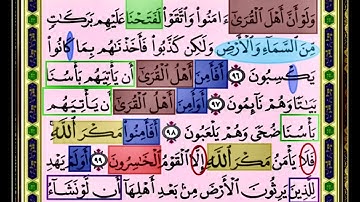 وَلَوْ أَنَّ أَهْلَ ٱلْقُرَىٰٓ ءَامَنُوا۟ وَٱتَّقَوْا۟ لَفَتَحْنَا عَلَيْهِم بَرَكَٰتٍ
مِّنَ ٱلسَّمَآءِ وَٱلْأَرْضِ وَلَٰكِن كَذَّبُوا۟ فَأَخَذْنَٰهُم بِمَا كَانُوا۟
يَكْسِبُونَ ٩٦ أَفَأَمِنَ أَهْلُ ٱلْقُرَىٰٓ أَن يَأْتِيَهُم بَأْسُنَا
بَيَٰتًا وَهُمْ نَآئِمُونَ ٩٧ أَوَأَمِنَ أَهْلُ ٱلْقُرَىٰٓ أَن يَأْتِيَهُم
بَأْسُنَا ضُحًى وَهُمْ يَلْعَبُونَ ٩٨ أَفَأَمِنُوا۟ مَكْرَ ٱللَّهِ
فَلَا يَأْمَنُ مَكْرَ ٱللَّهِ إِلَّا ٱلْقَوْمُ ٱلْخَٰسِرُونَ ٩٩ أَوَلَمْ يَهْدِ
لِلَّذِينَ يَرِثُونَ ٱلْأَرْضَ مِنۢ بَعْدِ أَهْلِهَآ أَن لَّوْ نَشَآءُ